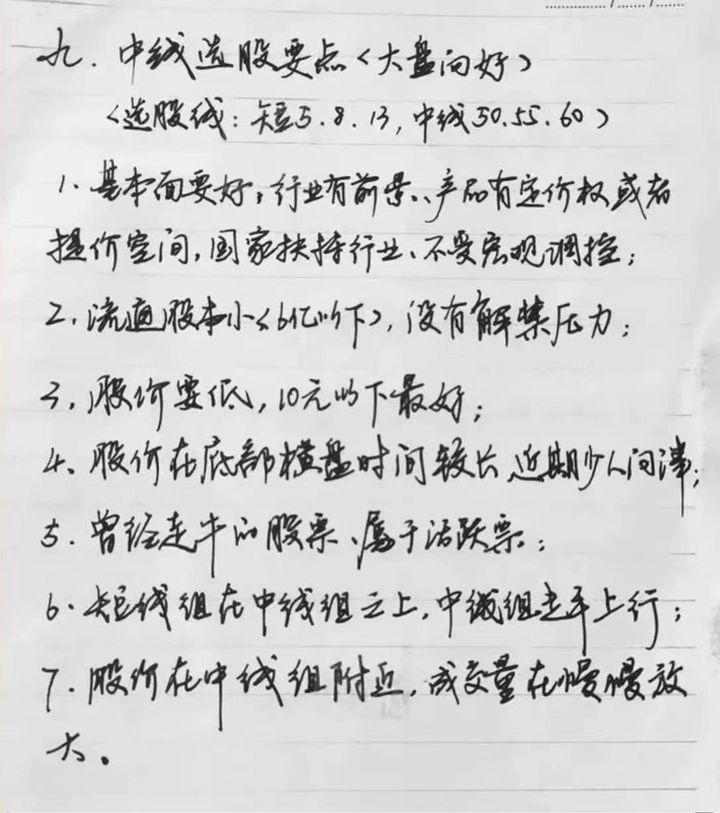 九. 中线选股要点〈大盘向好〉
〈选股线: 短5.8.13, 中线50.55.60〉
1. 基本面要好, 行业有前景、产品有定价权或者
提价空间, 国家扶持行业、不受宏观调控;
2. 流通股本小〈6亿以下〉, 没有解禁压力;
3. 股价要低, 10元以下最好;
4、股价在底部横盘时间较长,近期少人问津;
5. 曾经走牛的股票、属于活跃票;
6. 短线组在中线组之上, 中线组走平上行;
7. 股价在中线组附近, 成交量在慢慢放
大。